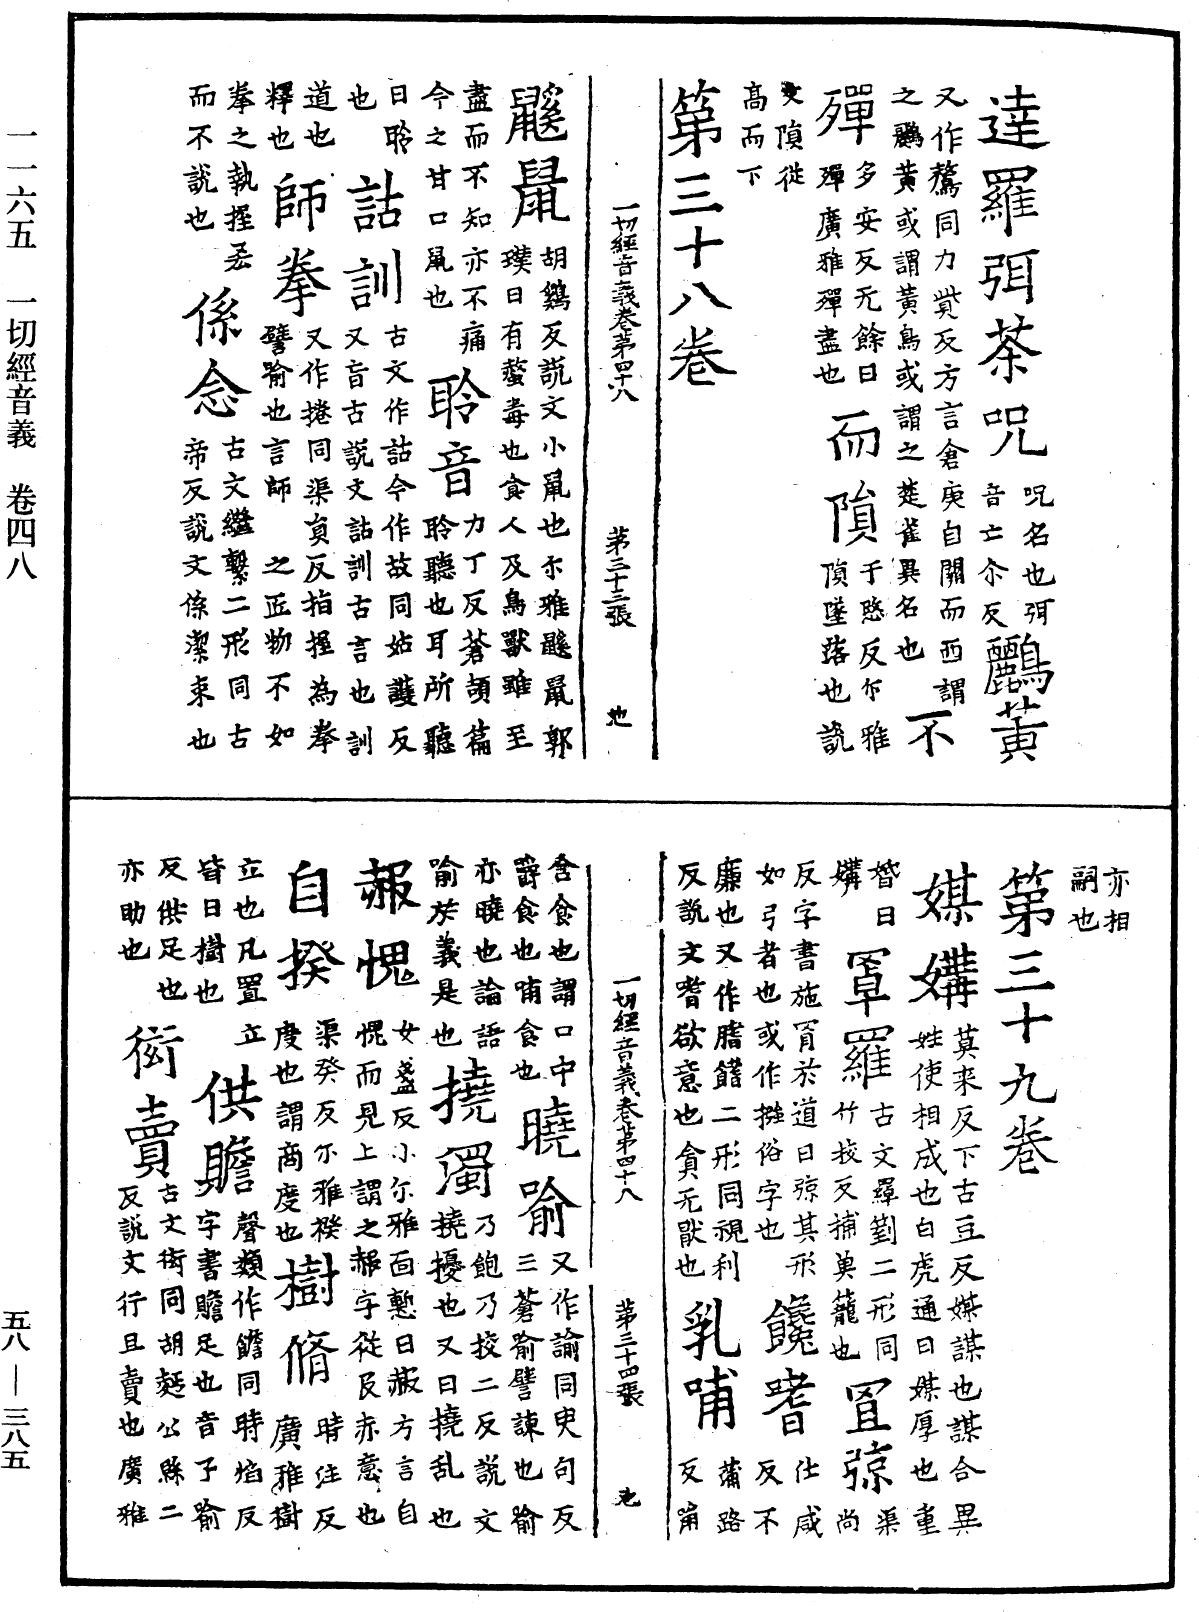 一一六五　一切經音義　卷四八
達羅弭荼呪
呪名也弭
音亡尒反
鸝黃
又作鶩同力貲反方言倉庚自關而西謂
之鸝黃或謂黃鳥或謂之楚雀異名也
不
殫
多安反无餘曰
殫廣雅殫盡也
而隕
于愍反尒雅
隕墜落也說
文隕從
高而下
第三十八卷
一切經音義卷第四十八　第三十三張
鼷鼠
胡雞反說文小鼠也尒雅鼷鼠郭
璞曰有螫毒也食人及鳥獸雖至
盡而不知亦不痛
今之甘口鼠也
聆音
力丁反蒼頡篇
聆聽也耳所聽
曰聆
也
詁訓
古文作詁今作故同姑護反
又音古說文詁訓古言也訓
道也
釋也
師拳
又作捲同渠員反指握為拳
譬喻也言師之匠物不如
拳之執握丟
而不說也
係念
古文繼繫二形同古
帝反說文係潔束也
亦相
嗣也
第三十九卷
媒媾
莫來反下古豆反媒謀也謀合異
姓使相成也白虎通曰媒厚也重
婚曰
媾
罩羅
古文羄䈇二形同
竹挍反捕魚籠也
罝弶
渠
尚
反字書施罥於道曰弶其形
如弓者也或作摾俗字也
饞嗜
仕咸
反不
廉也又作膳䭫二形同視利
反說文嗜欲意也貪无猒也
乳哺
蒲路
反甯
一切經音義卷第四十八　第三十四張
含食也謂口中
爵食也哺食也
曉喻
又作諭同臾句反
三蒼喻譬諫也喻
亦曉也論語
喻於義是也
撓濁
乃飽乃挍二反說文
撓擾也又曰撓乱也
赧愧
女盞反小尒雅面慙曰赧方言自
愧而見上謂之赧字從𠬝赤意也
自揆
渠癸反尒雅揆
度也謂商度也
樹脩
時注反
廣雅樹
立也凡置立
皆曰樹也
供贍
聲類作䭛同時焰反
字書贍足也音子喻
反供足也
亦助也
衒賣
古文衒同胡麪公縣二
反說文行且賣也廣雅
五八—三八五